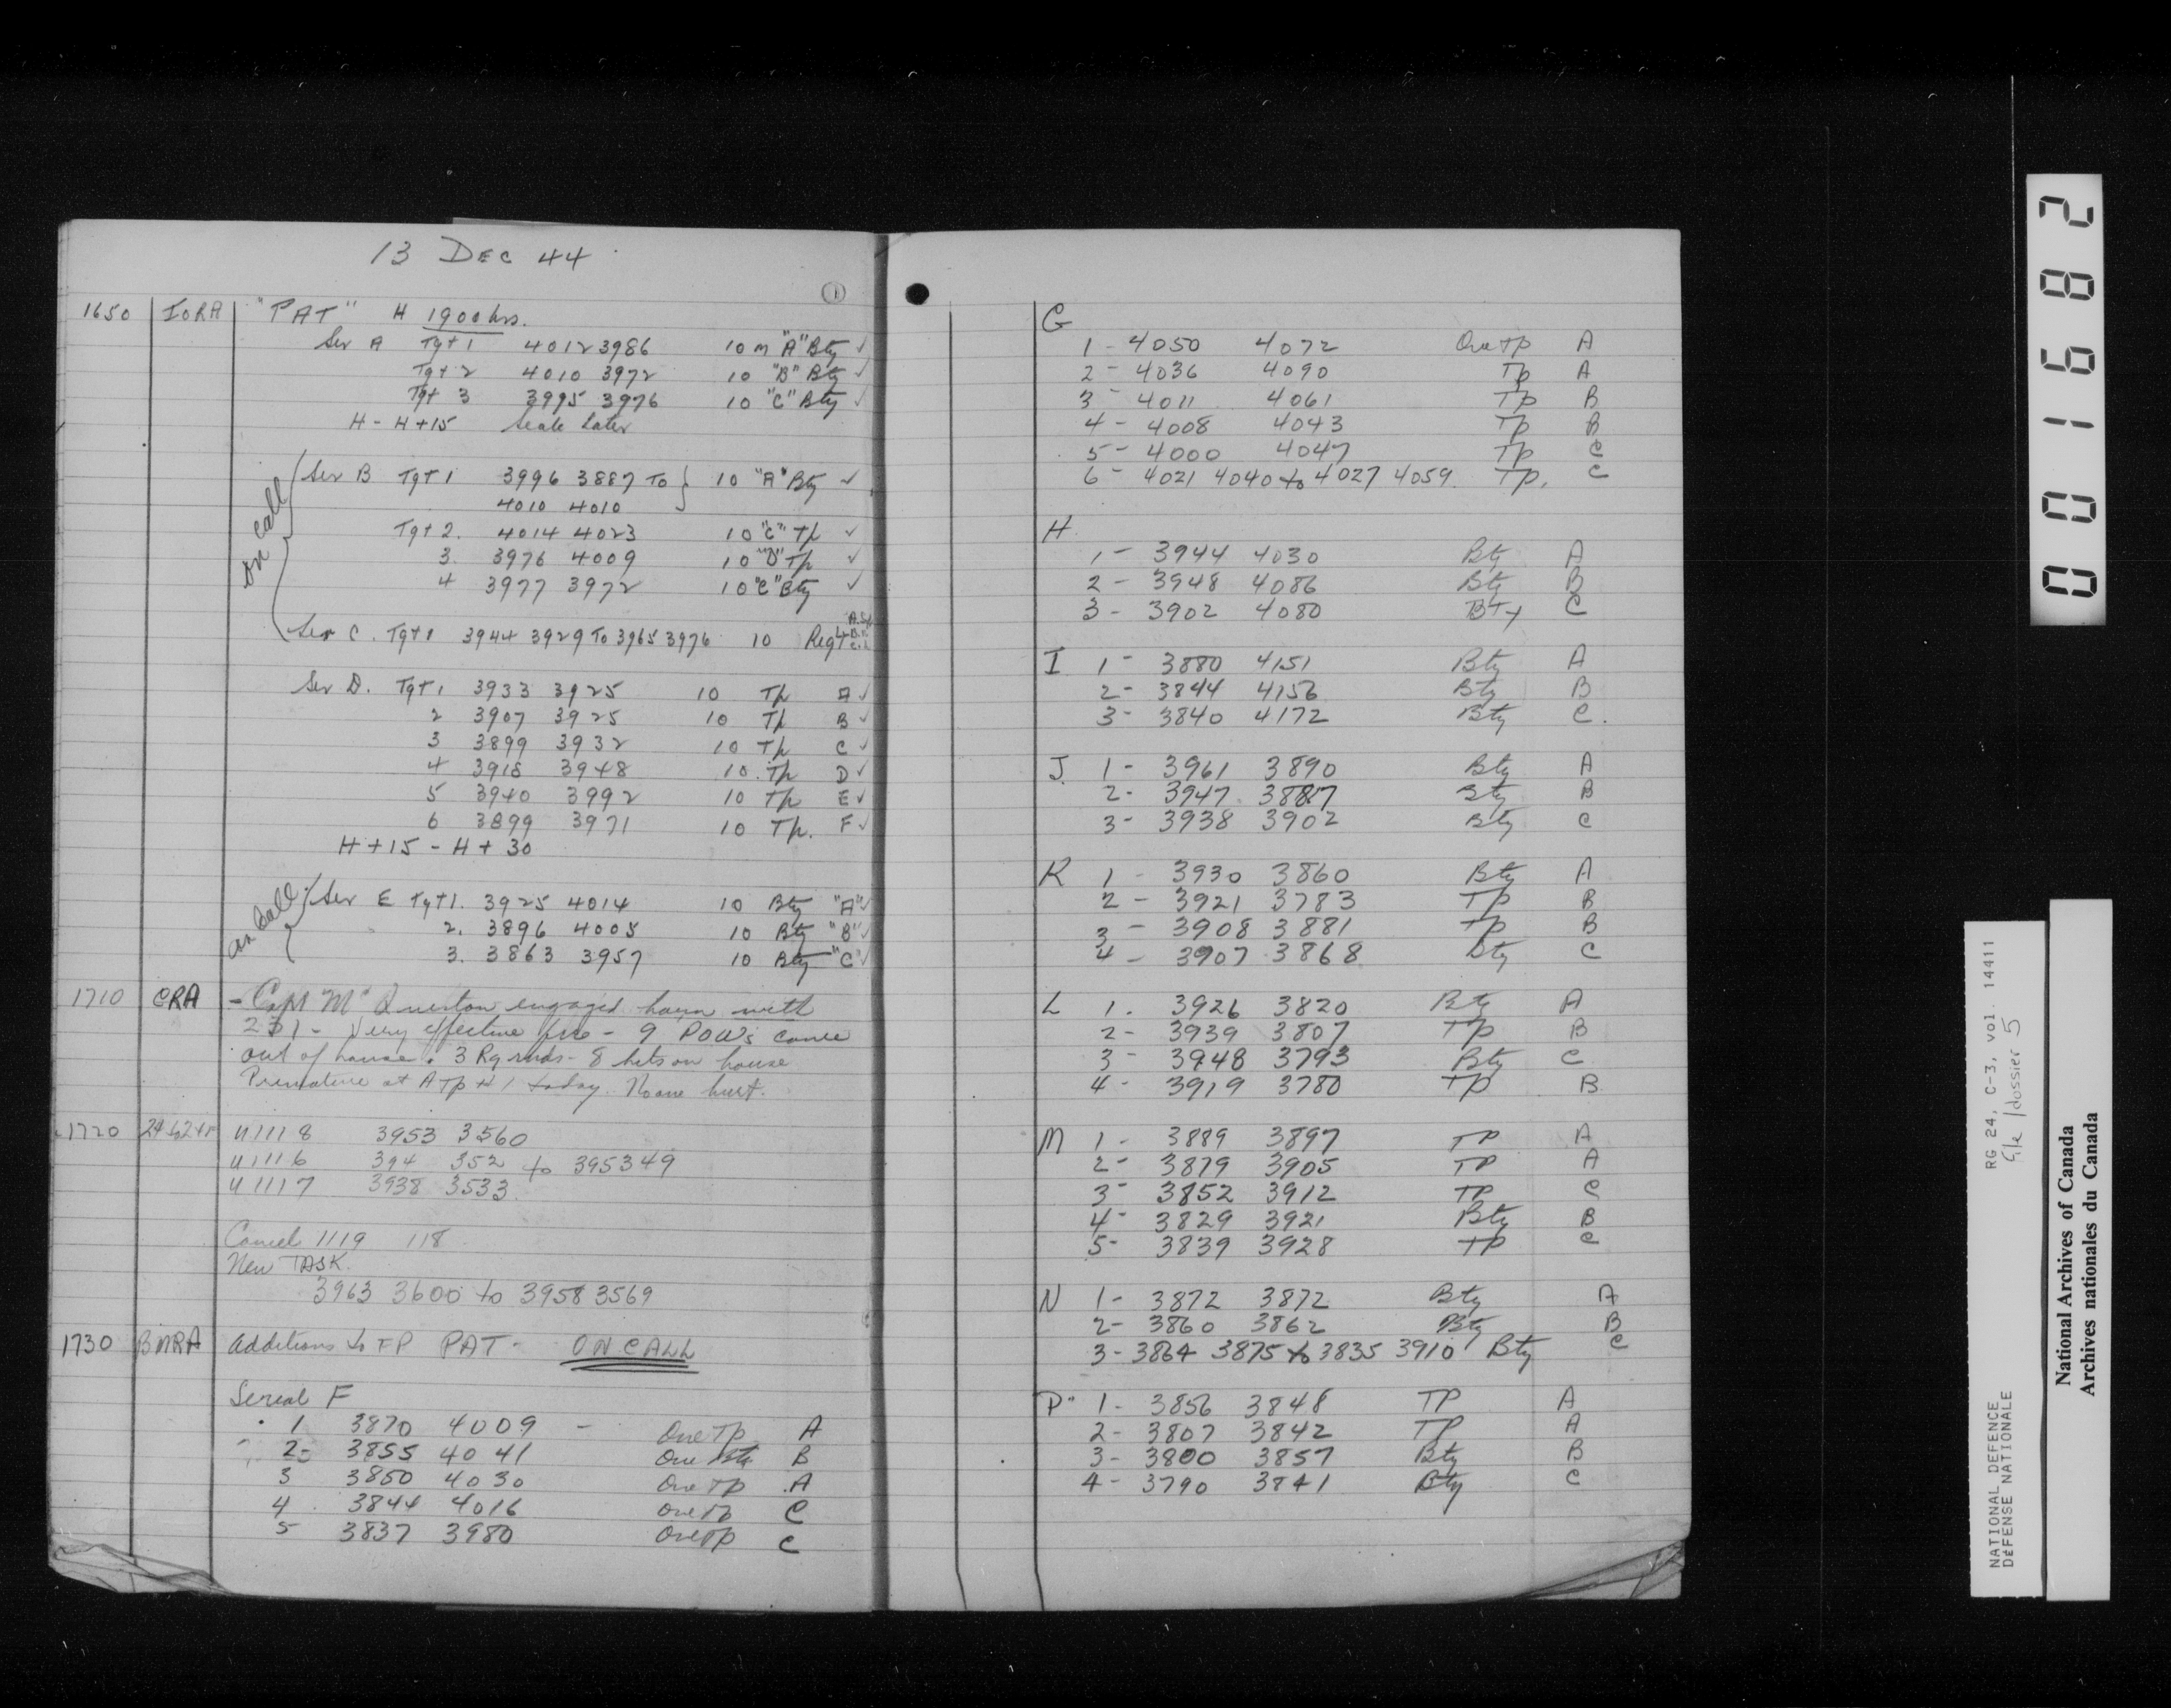 13 DEC 44
1650 IORA "PAT" H 1900 hrs.
Ser A Tgt 1 4012 3986 10 m "A" Bty ✓
Tgt 2 4010 3972 10 "B" Bty ✓
Tgt 3 3995 3976 10 "C" Bty ✓
H - H+15 Scale Later
on call
Ser B Tgt 1 3996 3887 To } 10 "A" Bty ✓
4010 4010
Tgt 2. 4014 4023 10 "C" Tp ✓
3. 3976 4009 10 "D" Tp ✓
4 3977 3972 10 "C" Bty ✓
Ser C. Tgt 1 3944 3929 To 3965 3976 10 Regt
Ser D. Tgt 1 3933 3925 10 Tp A ✓
2 3907 3925 10 Tp B ✓
3 3899 3932 10 Tp C ✓
4 3915 3948 10 Tp D ✓
5 3940 3992 10 Tp E ✓
6 3899 3971 10 Tp. F ✓
H+15 - H+30
on Call
Ser E Tgt 1. 3925 4014 10 Bty "A" ✓
2. 3896 4005 10 Bty "B" ✓
3. 3863 3957 10 Bty "C" ✓
1710 CRA - Capt engaged with
Very effective fire - 9 POWs came
out of house. 3 Rg rnds - 8 hits on house
Premature at A Tp #1 today. No one hurt.
1720 U1118 3953 3560
U1116 394 352 to 395349
U1117 3938 3533
Cancel 1119 118
New TASK.
3963 3600 to 3958 3569
1730 BMRA Additions to FP PAT - ON CALL
Serial F
1 3870 4009 - One TP A
2- 3855 4041 One Bty B
3 3850 4030 One TP A
4 3844 4016 One Tp C
5 3837 3980 One TP C
G
1 - 4050 4072 One TP A
2 - 4036 4090 Tp A
3 - 4011 4061 Tp B
4 - 4008 4043 Tp B
5 - 4000 4047 Tp C
6 - 4021 4040 to 4027 4059 Tp. C
H
1 - 3944 4030 Bty A
2 - 3948 4086 Bty B
3 - 3902 4080 BTY C
I 1 - 3880 4151 Bty A
2 - 3844 4156 Bty B
3 - 3840 4172 Bty C.
J 1 - 3961 3890 Bty A
2 - 3947 Bty B
3 - 3938 3902 Bty C
K 1 - 3930 3860 Bty A
2 - 3921 3783 TP B
3 - 3908 3881 Tp B
4 - 3907 3868 Bty C
L 1. 3926 3820 Bty A
2 - 3939 3807 TP B
3 - 3948 3793 Bty C
4 - 3919 3780 TP B
M 1 - 3889 3897 TP A
2 - 3879 3905 TP A
3 - 3852 3912 TP C
4 - 3829 3921 Bty B
5 - 3839 3928 TP C
N 1 - 3872 3872 Bty A
2 - 3860 3862 Bty B
3 - 3864 3875 to 3835 3910 Bty C
P 1 - 3856 3848 TP A
2 - 3807 3842 TP A
3 - 3800 3857 Bty B
4 - 3790 3841 Bty C
001682
RG 24, C-3, vol. 14411
file/dossier 5
NATIONAL DEFENCE
DÉFENSE NATIONALE
National Archives of Canada
Archives nationales du Canada